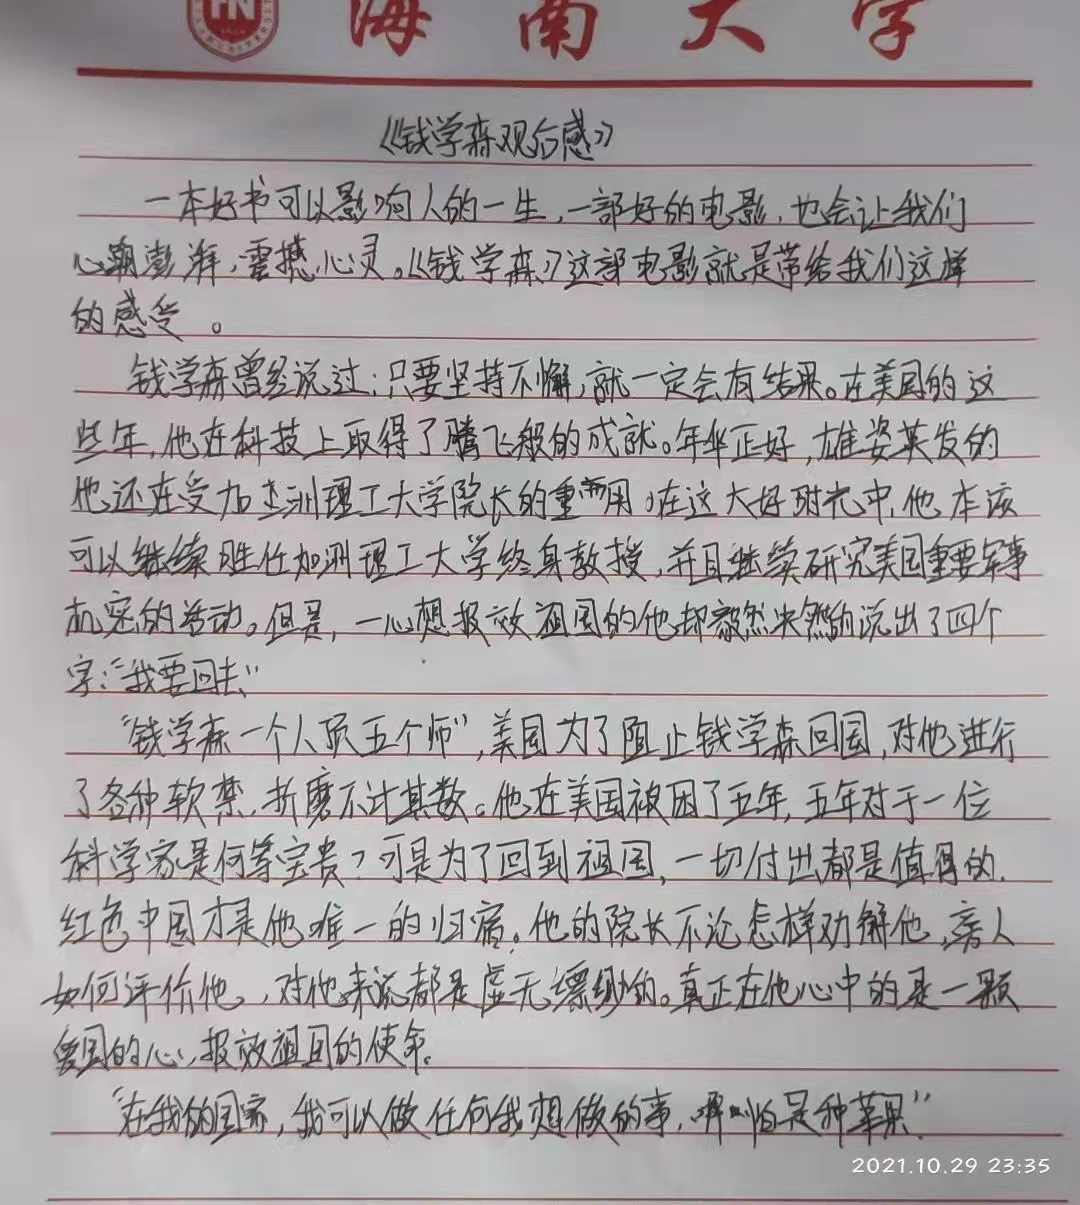 海南大学
《钱学森观后感》
一本好书可以影响人的一生,一部好的电影,也会让我们
心潮澎湃,震撼心灵。《钱学森》这部电影就是带给我们这样
的感受。
钱学森曾经说过:只要坚持不懈,就一定会有结果。在美国的这
些年,他在科技上取得了腾飞般的成就。年华正好,雄姿英发的
他还在受加州理工大学院长的重用。在这大好时光中,他本该
可以继续胜任加州理工大学终身教授,并且继续研究美国重要军事
机密的活动。但是,一心想报效祖国的他却毅然决然的说出了四个
字:“我要回去”
“钱学森一个人顶五个师”,美国为了阻止钱学森回国,对他进行
了各种软禁,折磨不计其数。他在美国被困了五年,五年对于一位
科学家是何等宝贵?可是为了回到祖国,一切付出都是值得的.
红色中国才是他唯一的归宿。他的院长不论怎样劝解他,旁人
如何评价他,对他来说都是虚无缥缈的。真正在他心中的是一颗
爱国的心,报效祖国的使命。
“在我的国家,我可以做任何我想做的事,哪怕是种苹果”
2021.10.29 23:35